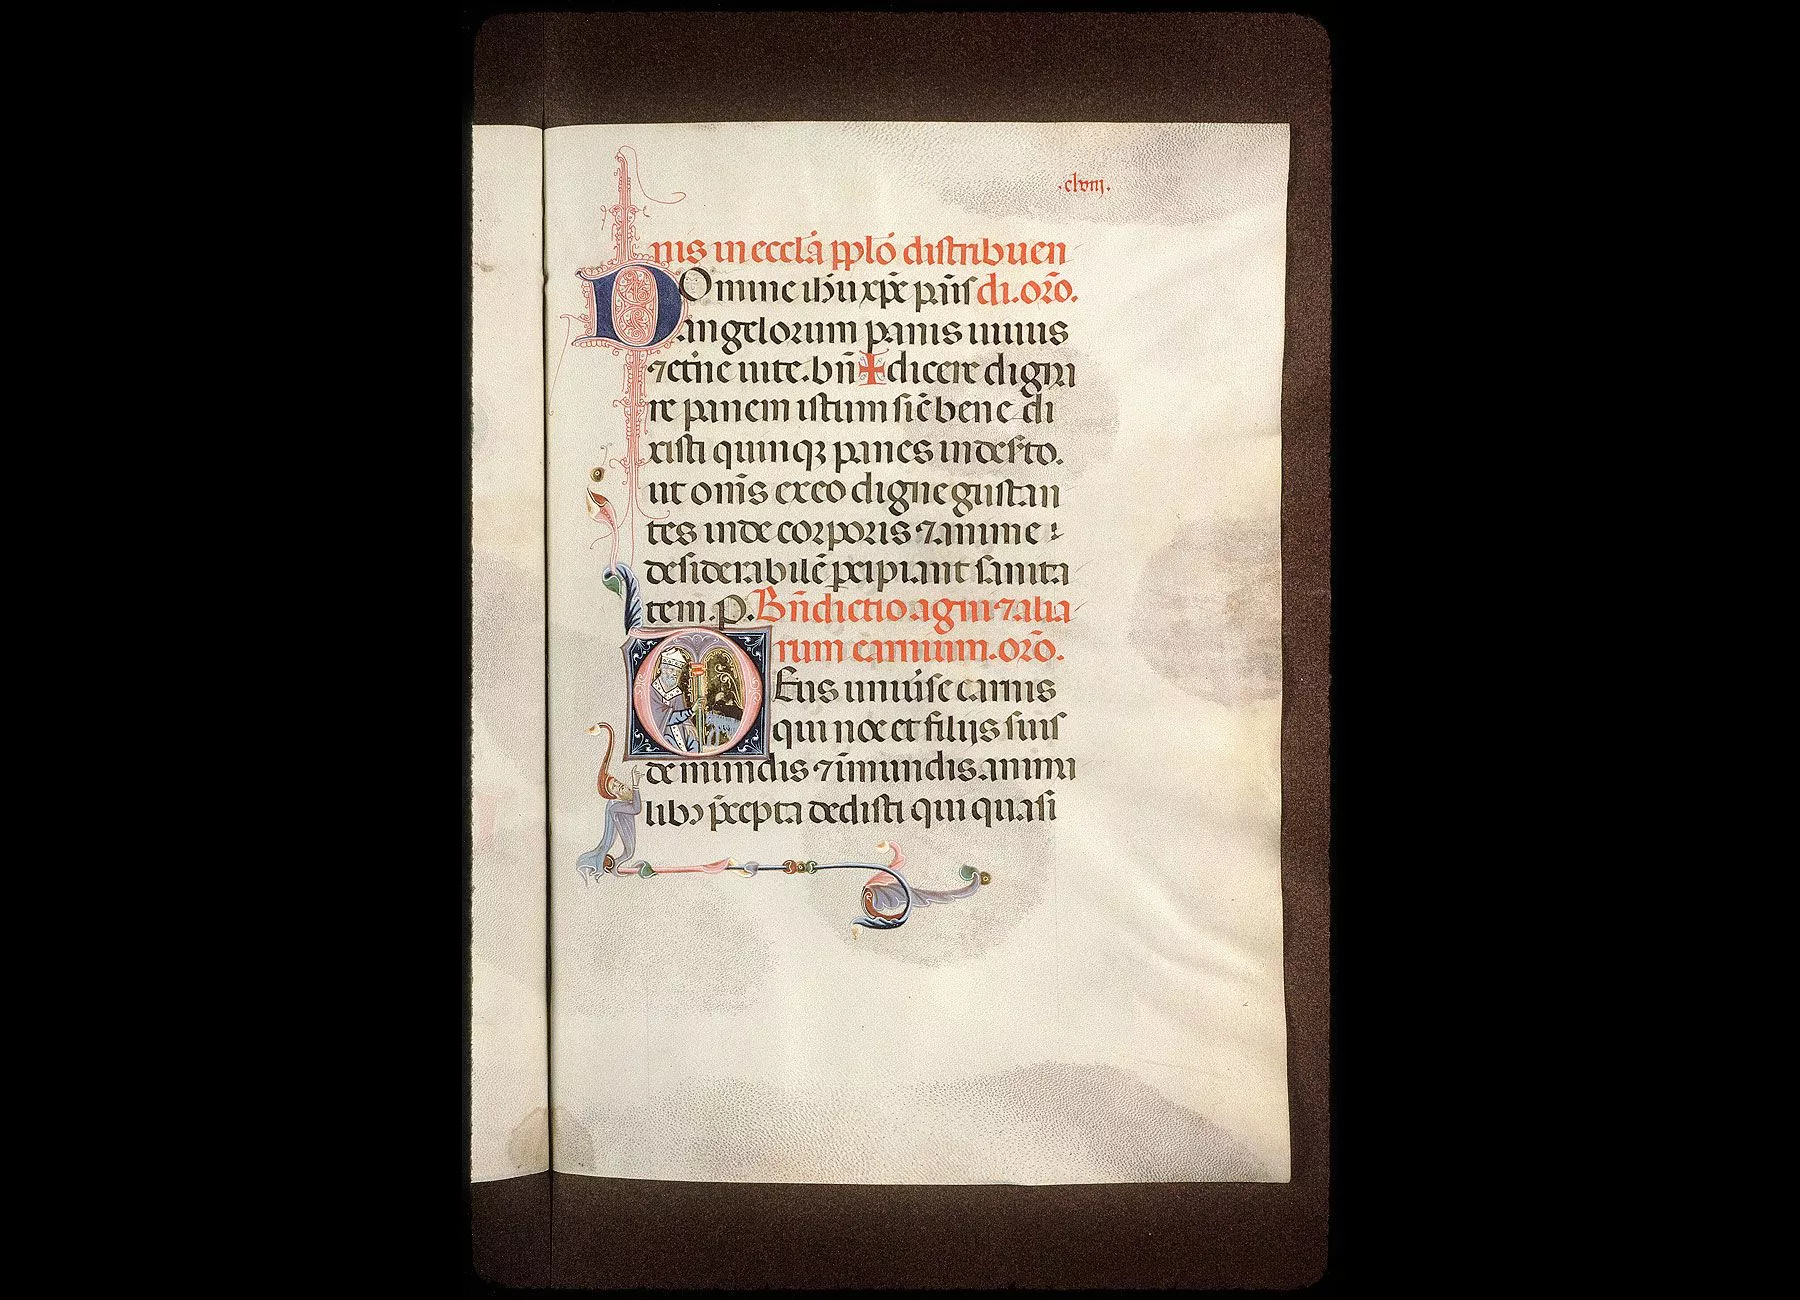 .clviij.
nis in eccl̃a pplo distribuen
Domine ihũ xp̃e pañis di. or̃o.
angelorum panis uiuus
⁊ et̃ne uite. bñ✠dicere digna
re panem istum sic̃ bene di
xisti quinqꝫ panes in des̃to.
ut om̃s ex eo digne gustan
tes inde corporis ⁊ anime
desiderabilẽ p̃cipiant sanita
tem. P. Bñdictio agni ⁊ alia
rum carnium. or̃o.
Deus uniu̾se carnis
qui noe et filijs suis
de mundis ⁊ ĩmundis anima
libꝫ p̃cepta dedisti qui quasi